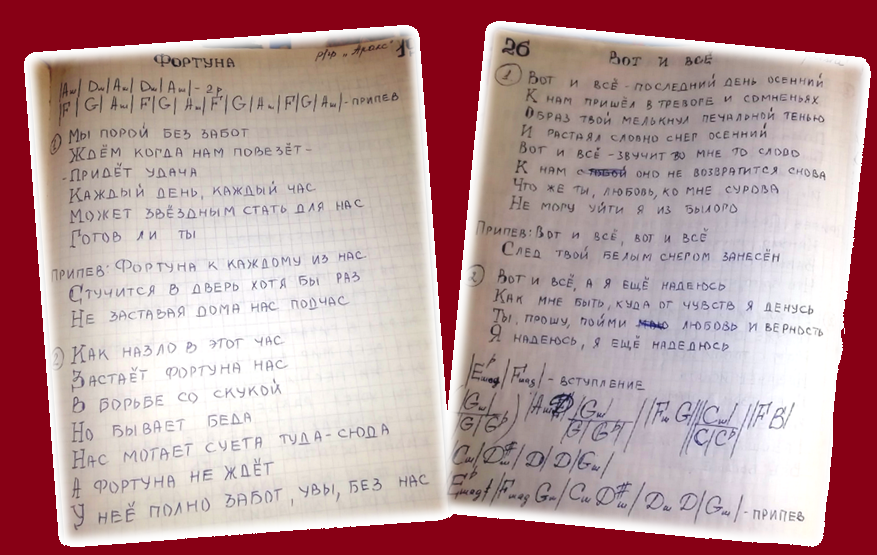 ФОРТУНА
р/гр „Аракс"
19
|Am| Dm| Am| Dm| Am| - 2р
|F| G| Am| F| G| Am| F| G| Am| F| G| Am| - ПРИПЕВ
① МЫ ПОРОЙ БЕЗ ЗАБОТ
ЖДЁМ КОГДА НАМ ПОВЕЗЁТ -
- ПРИДЁТ УДАЧА
КАЖДЫЙ ДЕНЬ, КАЖДЫЙ ЧАС
МОЖЕТ ЗВЁЗДНЫМ СТАТЬ ДЛЯ НАС
ГОТОВ ЛИ ТЫ
ПРИПЕВ: ФОРТУНА К КАЖДОМУ ИЗ НАС
СТУЧИТСЯ В ДВЕРЬ ХОТЯ БЫ РАЗ
НЕ ЗАСТАВАЯ ДОМА НАС ПОДЧАС
② КАК НАЗЛО В ЭТОТ ЧАС
ЗАСТАЁТ ФОРТУНА НАС
В БОРЬБЕ СО СКУКОЙ
НО БЫВАЕТ БЕДА
НАС МОТАЕТ СУЕТА ТУДА-СЮДА
А ФОРТУНА НЕ ЖДЁТ
У НЕЁ ПОЛНО ЗАБОТ, УВЫ, БЕЗ НАС
26
ВОТ И ВСЁ
① ВОТ И ВСЁ - ПОСЛЕДНИЙ ДЕНЬ ОСЕННИЙ
К НАМ ПРИШЁЛ В ТРЕВОГЕ И СОМНЕНЬЯХ
ОБРАЗ ТВОЙ МЕЛЬКНУЛ ПЕЧАЛЬНОЙ ТЕНЬЮ
И РАСТАЯЛ СЛОВНО СНЕГ ОСЕННИЙ
ВОТ И ВСЁ - ЗВУЧИТ ВО МНЕ ТО СЛОВО
К НАМ С ТОБОЙ ОНО НЕ ВОЗВРАТИТСЯ СНОВА
ЧТО ЖЕ ТЫ, ЛЮБОВЬ, КО МНЕ СУРОВА
НЕ МОГУ УЙТИ Я ИЗ БЫЛОГО
ПРИПЕВ: ВОТ И ВСЁ, ВОТ И ВСЁ
СЛЕД ТВОЙ БЕЛЫМ СНЕГОМ ЗАНЕСЁН
2 ВОТ И ВСЁ, А Я ЕЩЁ НАДЕЮСЬ
КАК МНЕ БЫТЬ, КУДА ОТ ЧУВСТВ Я ДЕНУСЬ
ТЫ, ПРОШУ, ПОЙМИ ЛЮБОВЬ И ВЕРНОСТЬ
Я НАДЕЮСЬ, Я ЕЩЁ НАДЕДЮСЬ
|Eᵖmag| F'mag| - ВСТУПЛЕНИЕ
|Gm| |Am |Gm| |Fm G| |Cm| |F B|
G|Gᵖ G|Gᵖ| C|Cᵖ
Cm| D#m| D| D|Gm|
Eᵖmag| Fmag Gm| Cm D#m| Dm D| Gm| - ПРИПЕВ